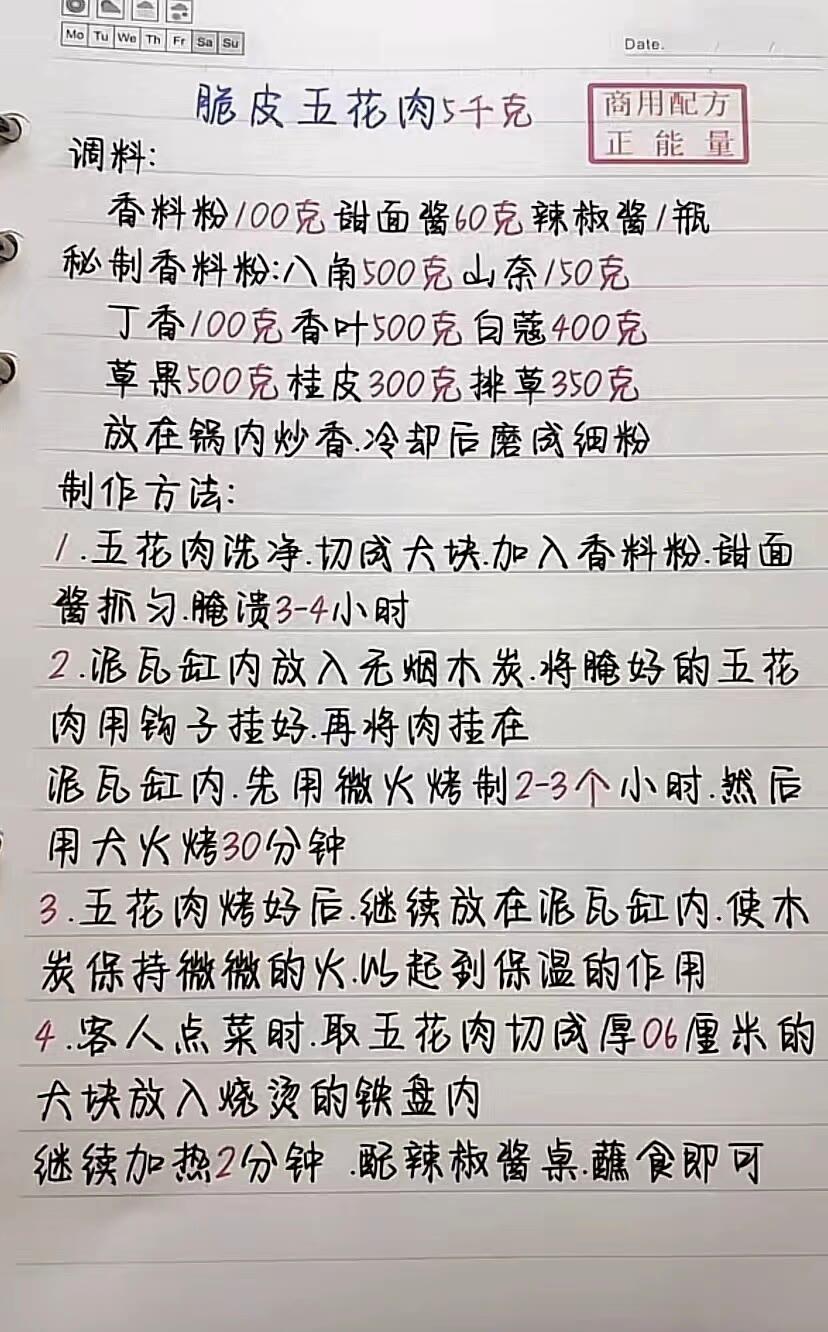 Mo Tu We Th Fr Sa Su
Date. / /
脆皮五花肉5千克
商用配方
正能量
调料:
香料粉100克甜面酱60克辣椒酱1瓶
秘制香料粉:八角500克山奈150克
丁香100克香叶500克白蔻400克
草果500克桂皮300克排草350克
放在锅内炒香.冷却后磨成细粉
制作方法:
1.五花肉洗净.切成大块.加入香料粉.甜面
酱抓匀.腌渍3-4小时
2.泥瓦缸内放入无烟木炭.将腌好的五花
肉用钩子挂好.再将肉挂在
泥瓦缸内.先用微火烤制2-3个小时.然后
用大火烤30分钟
3.五花肉烤好后.继续放在泥瓦缸内.使木
炭保持微微的火.以起到保温的作用
4.客人点菜时.取五花肉切成厚06厘米的
大块放入烧烫的铁盘内
继续加热2分钟.配辣椒酱桌.蘸食即可